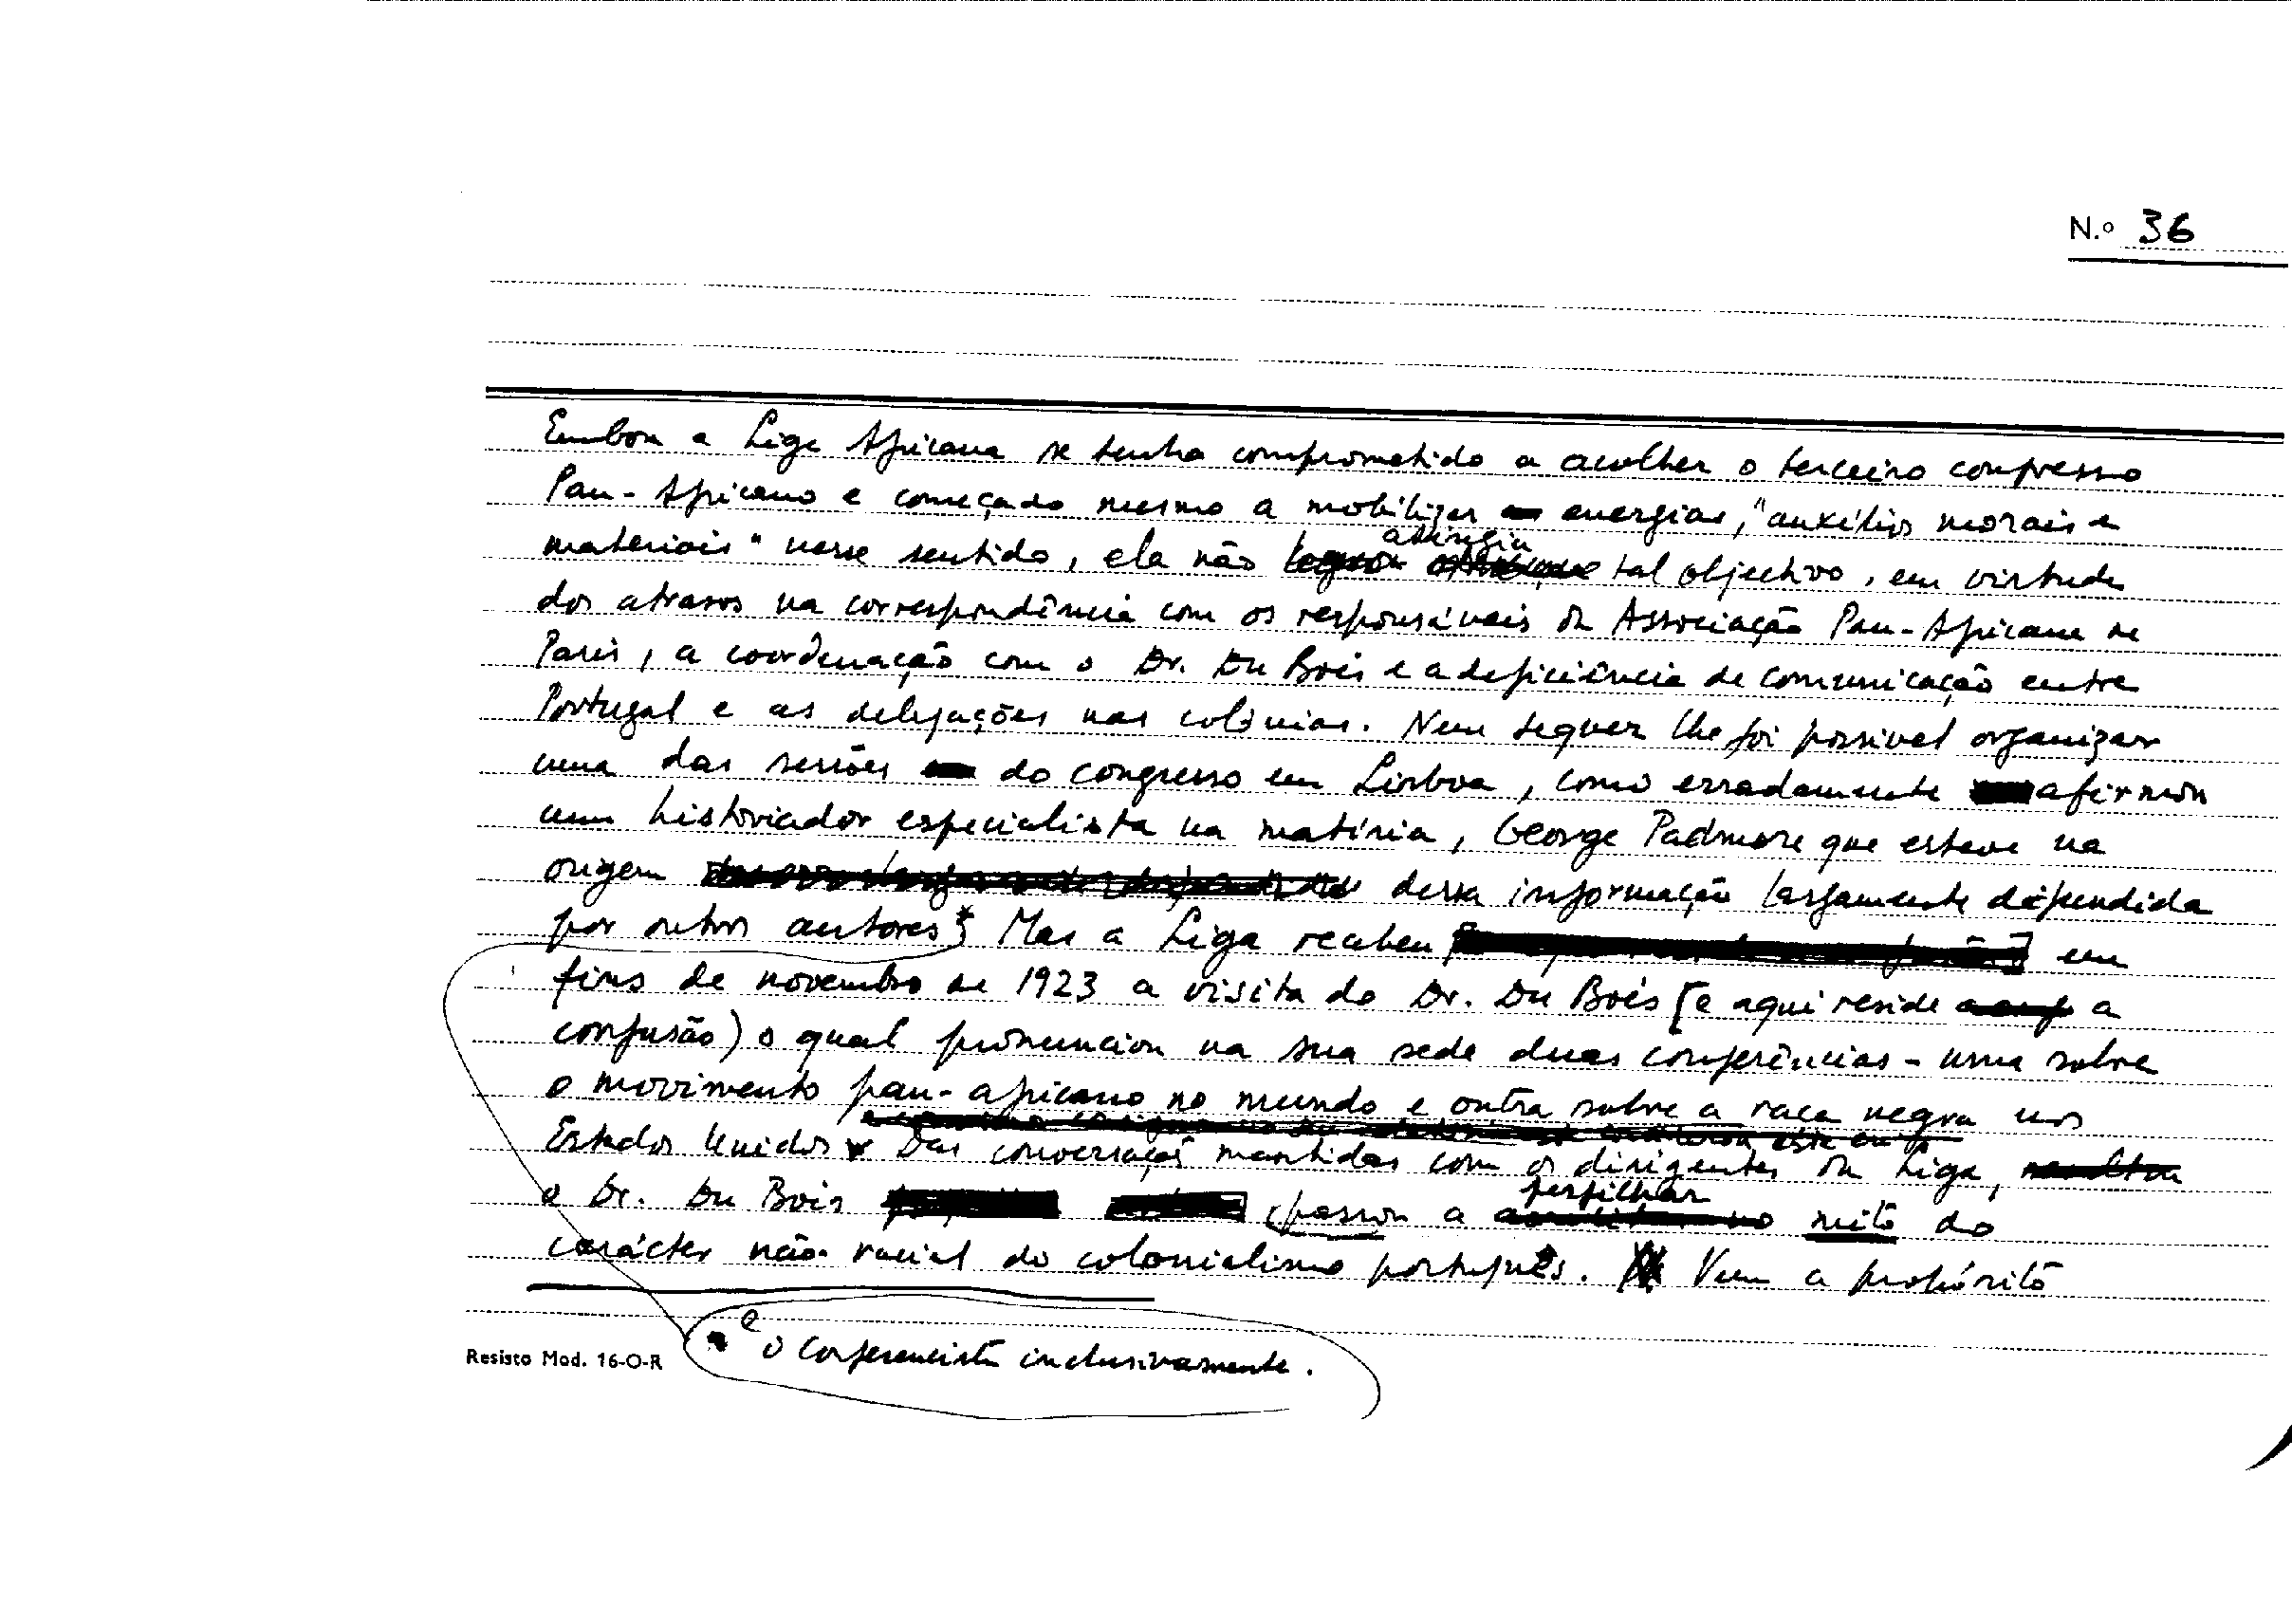 N.º 36
Embora a Liga Africana se tenha comprometido a acolher o terceiro congresso
Pan-Africano e começado mesmo a mobilizar energias, "auxílios morais e
materiais" nesse sentido, ela não atingiu tal objectivo, em virtude
dos atrasos na correspondência com os responsáveis da Associação Pan-Africana de
Paris, a coordenação com o Dr. Du Bois e a deficiência de comunicação entre
Portugal e as delegações nas colónias. Nem sequer lhe foi possível organizar
uma das sessões do congresso em Lisboa, como erradamente afirmou
um historiador especialista na matéria, George Padmore que esteve na
origem dessa informação largamente difundida
por outros autores* Mas a Liga recebeu em
fins de novembro de 1923 a visita do Dr. Du Bois [e aqui reside a
confusão) o qual pronunciou na sua sede duas conferências - uma sobre
o movimento pan-africano no mundo e outra sobre a raça negra nos
Estados Unidos Das conversações mantidas com os dirigentes da Liga,
o Dr. Du Bois passou a perfilhar mito do
carácter não-racial do colonialismo português. Vem a propósito
e o conferencista inclusivamente.
Resisto Mod. 16-O-R